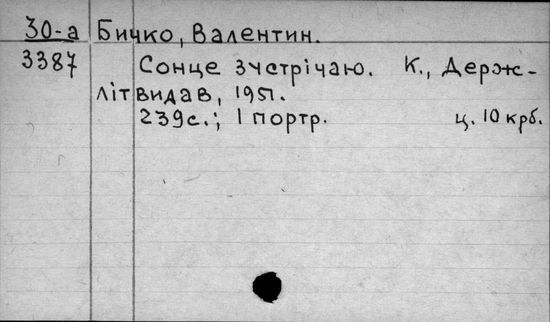 30-а Бичко, Валентин.
3387 Сонце зустрічаю. К., Держ-
літвидав, 1951.
239с.; 1 портр. ц. 10 крб.